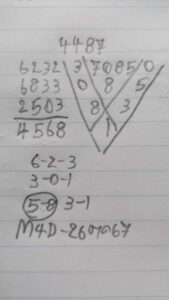 4487
6232 3 7085 0
6833 0 8 5
2503 8 3
4568 1
6-2-3
3-0-1
5-8 3-1